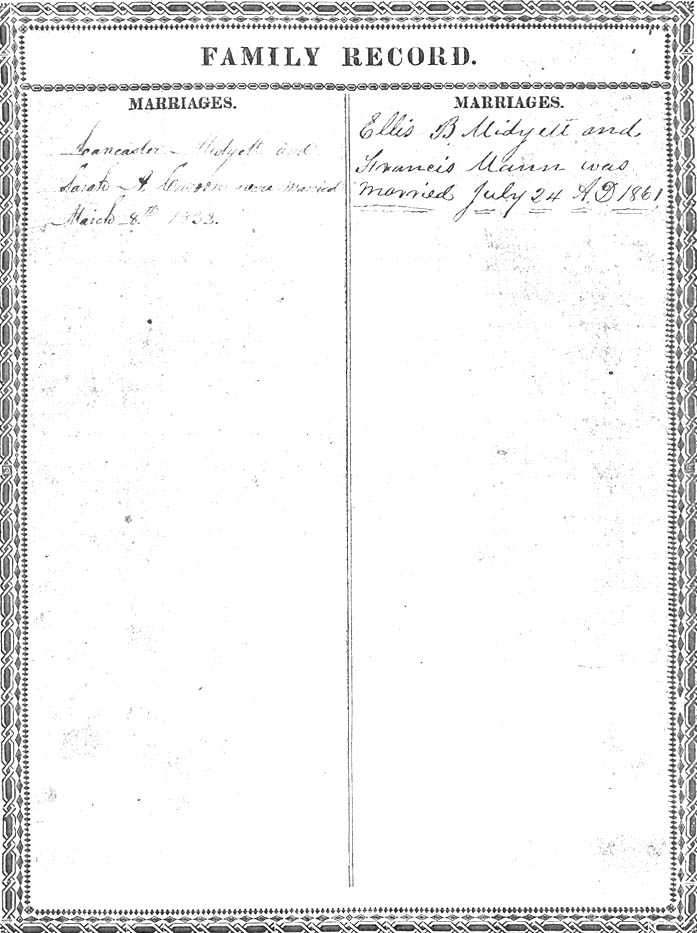 FAMILY RECORD.
MARRIAGES.
Lancaster Midyett and
Sarah A were married
March 8th 1833.
MARRIAGES.
Ellis B Midyett and
Francis Mann was
married July 24 A.D 1861